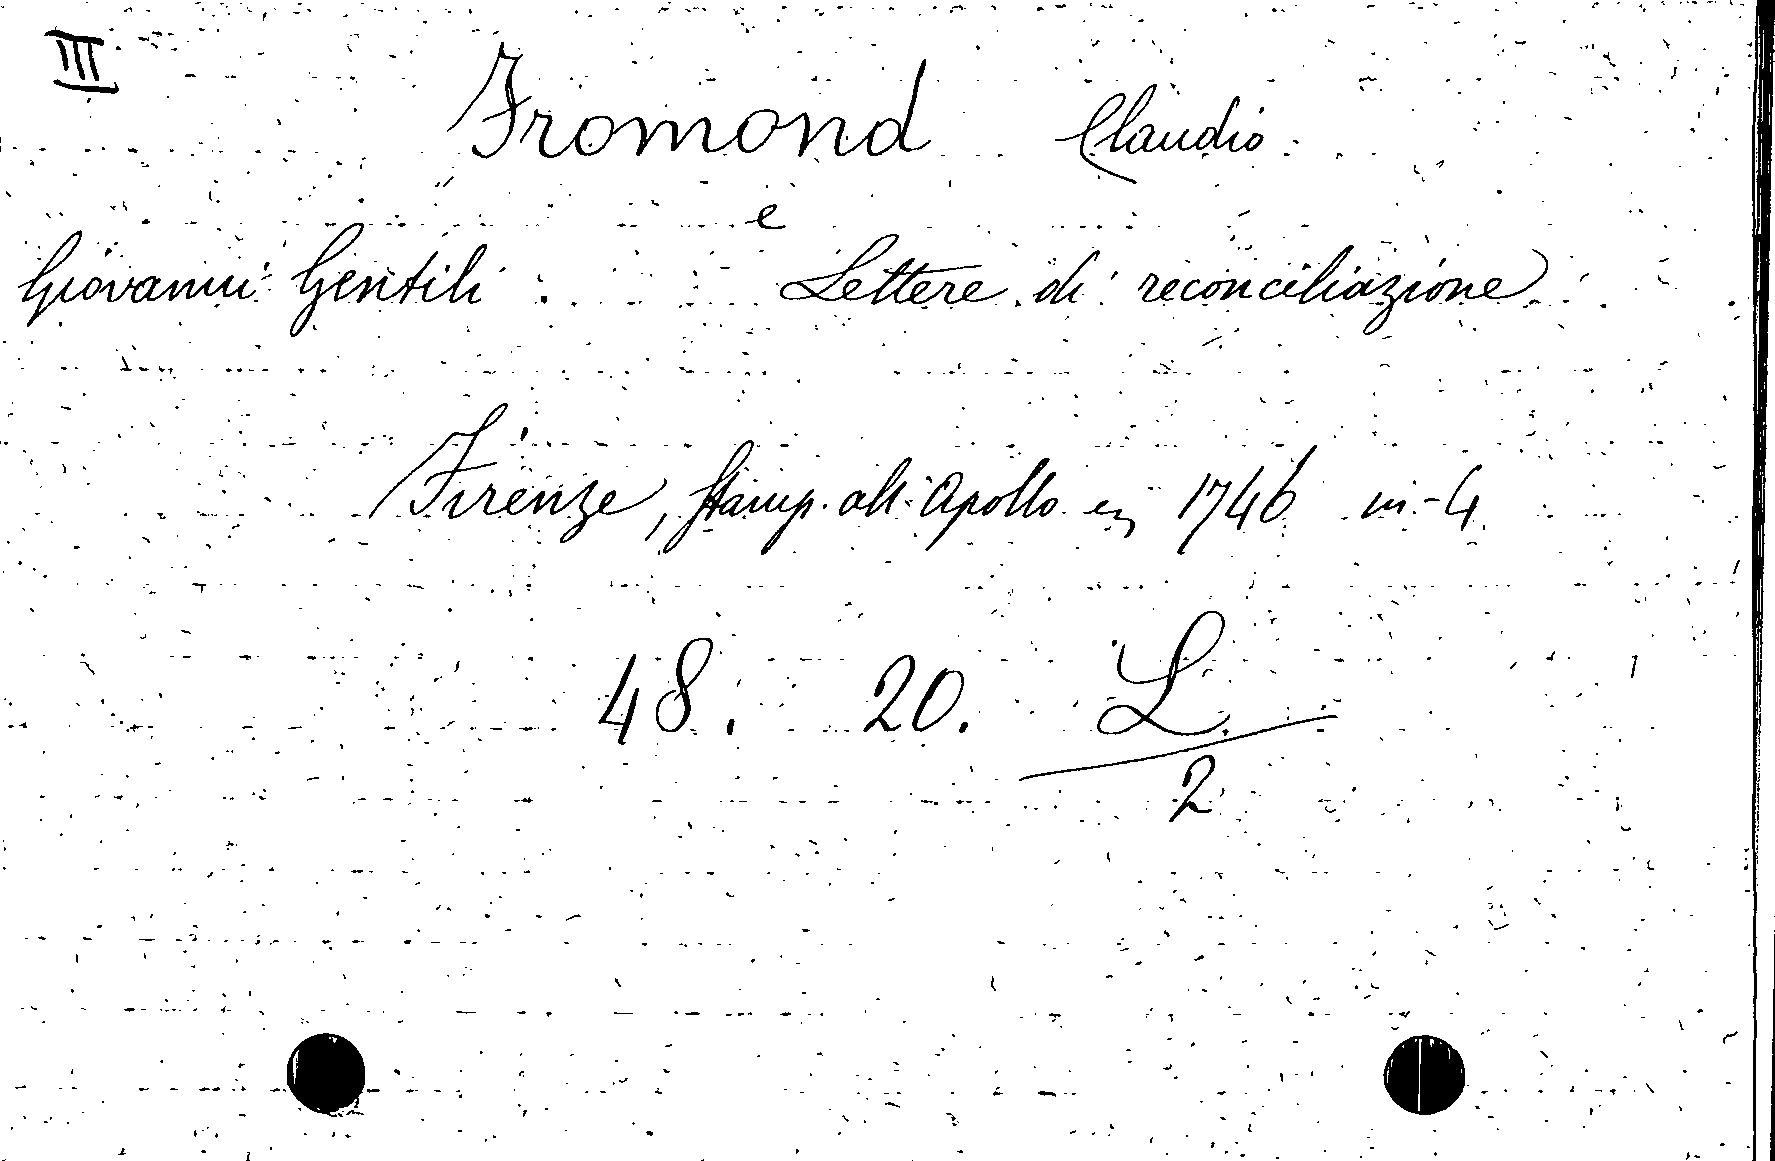 III
Fromond Claudio
e
Giovanni Gentili Lettere di reconciliazione
Firenze, Stamp. all' Apollo 1746 in-4
48. 20. L.
2